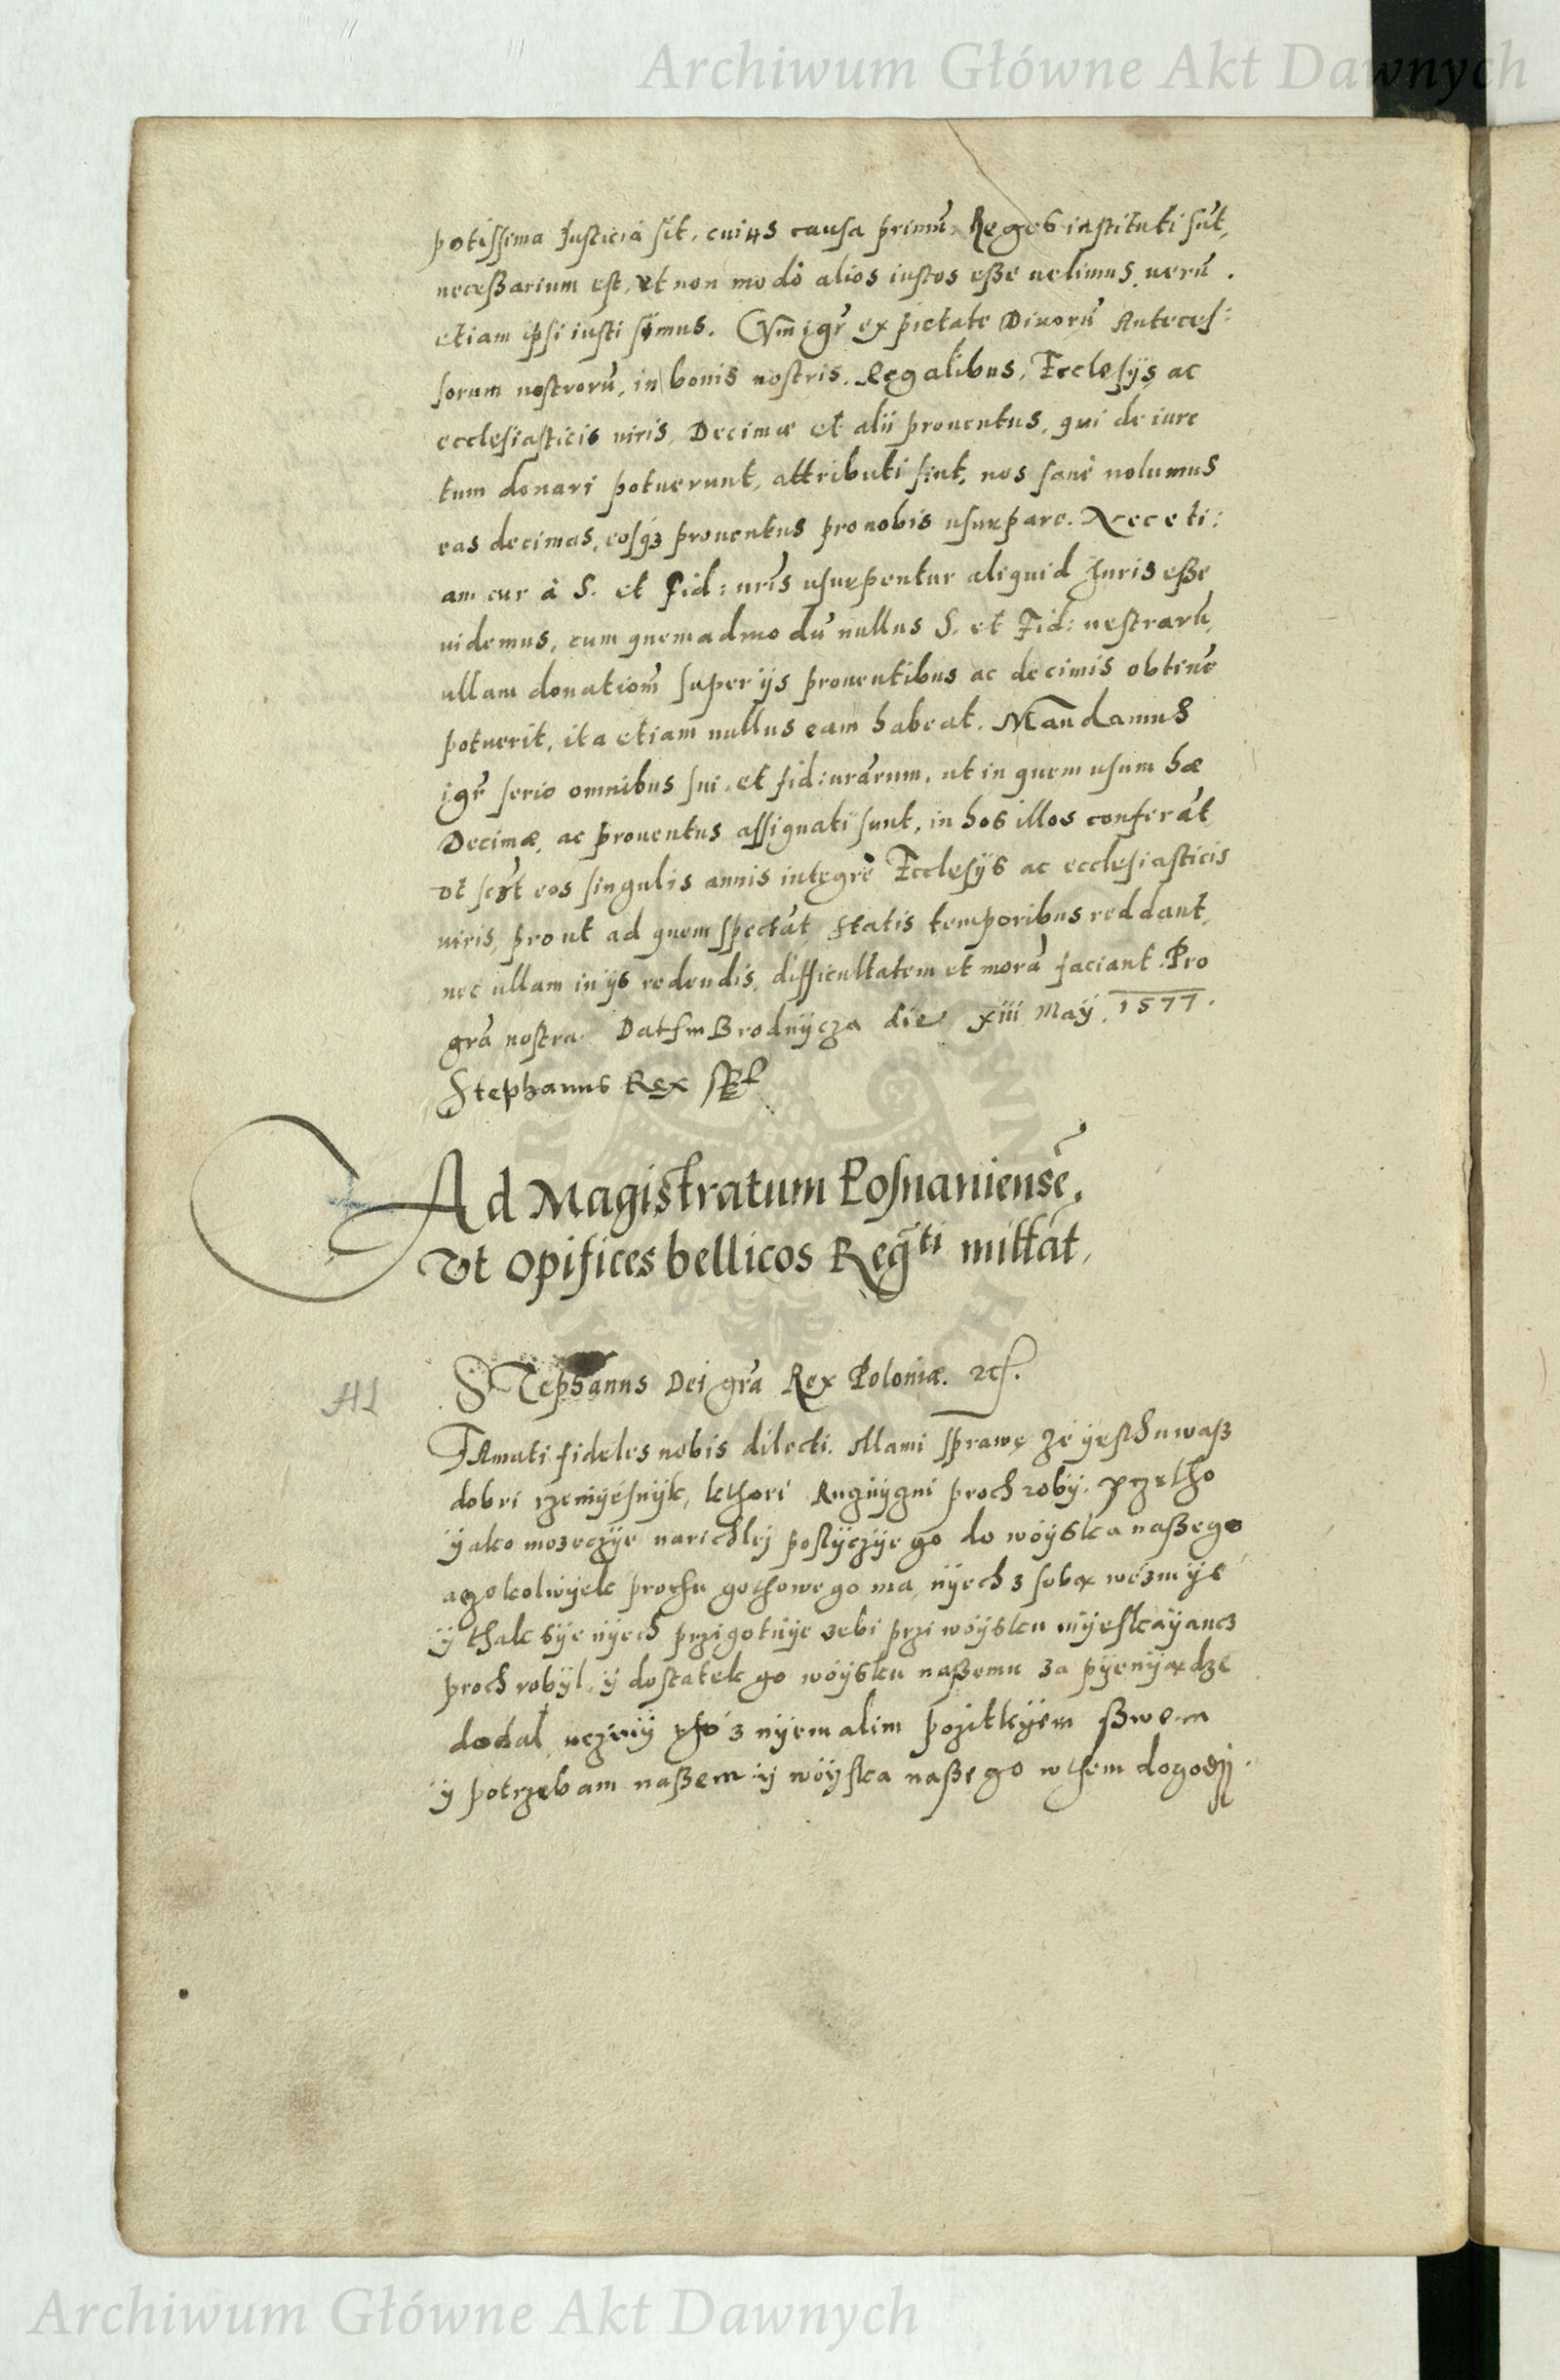 Archiwum Główne Akt Dawnych
potissima Justicia sit, cuius causa primũ Reges instituti sũt,
necessarium est, ut non modò alios iustos eße uelimus, uerũ
etiam ipsi iusti simus. Cum igr̃ ex pietate Diuorũ Anteces:
sorum nostrorũ, in bonis nostris Regalibus, Ecclesijs ac
ecclesiasticis uiris, Decimæ et alii prouentus, qui de iure
tum donari potuerunt, attributi sint, nos sanè nolumus
eas decimas, eosq3 prouentus pro nobis usurpare. Nec eti:
am cur à S. et Fid: uris̃ usurpentur aliquid Juris eße
uidemus, cum quemadmodũ nullus S. et Fid: uestrarũ,
ullam donationẽ super ijs prouentibus ac decimis obtinẽ
potuerit, ita etiam nullus eam habeat. Mandamus
igr̃ serio omnibus sin. et fid: urãrum, ut in quem usum hæ
Decimæ, ac prouentus assignati sunt, in hos illos conferãt,
ut eos singulis annis integrè Ecclesijs ac ecclesiasticis
uiris, prout ad quem spectãt, statis temporibus reddant,
nec ullam in ijs redendis, difficultatem et morã faciant. Pro
grã nostra. Dat Brodnÿcza die xiii Maÿ. 1577.
Stephanus Rex sst
Ad Magistratum Posnaniensẽ,
Vt opifices bellicos Regᵗⁱ mittãt,
41
STephanus Dei grã Rex Poloniæ. etc.
FAmati fideles nobis dilecti. Mami sprawę ze ÿesth u waß
dobri rzemÿesnÿk, kthori Rugnÿgni proch roby. przetho
ÿako mozeczÿe narichlej poslÿczÿe go do wóÿska naßego
aczokolwÿek prochu gothowego ma, nÿech z sobą wezmÿe
ÿ thak sÿe nÿech przigotuÿe zebi przi woÿsku mÿeskaÿancz
proch robÿl, ÿ dostatek go wóÿsku naßemu za pÿenÿądze
dodal, uczÿnÿ tho z nÿemalim pozitkÿem ßwem
ÿ potrzebam naßem ÿ wóÿska naßego wthem dogodzj.
Archiwum Główne Akt Dawnych